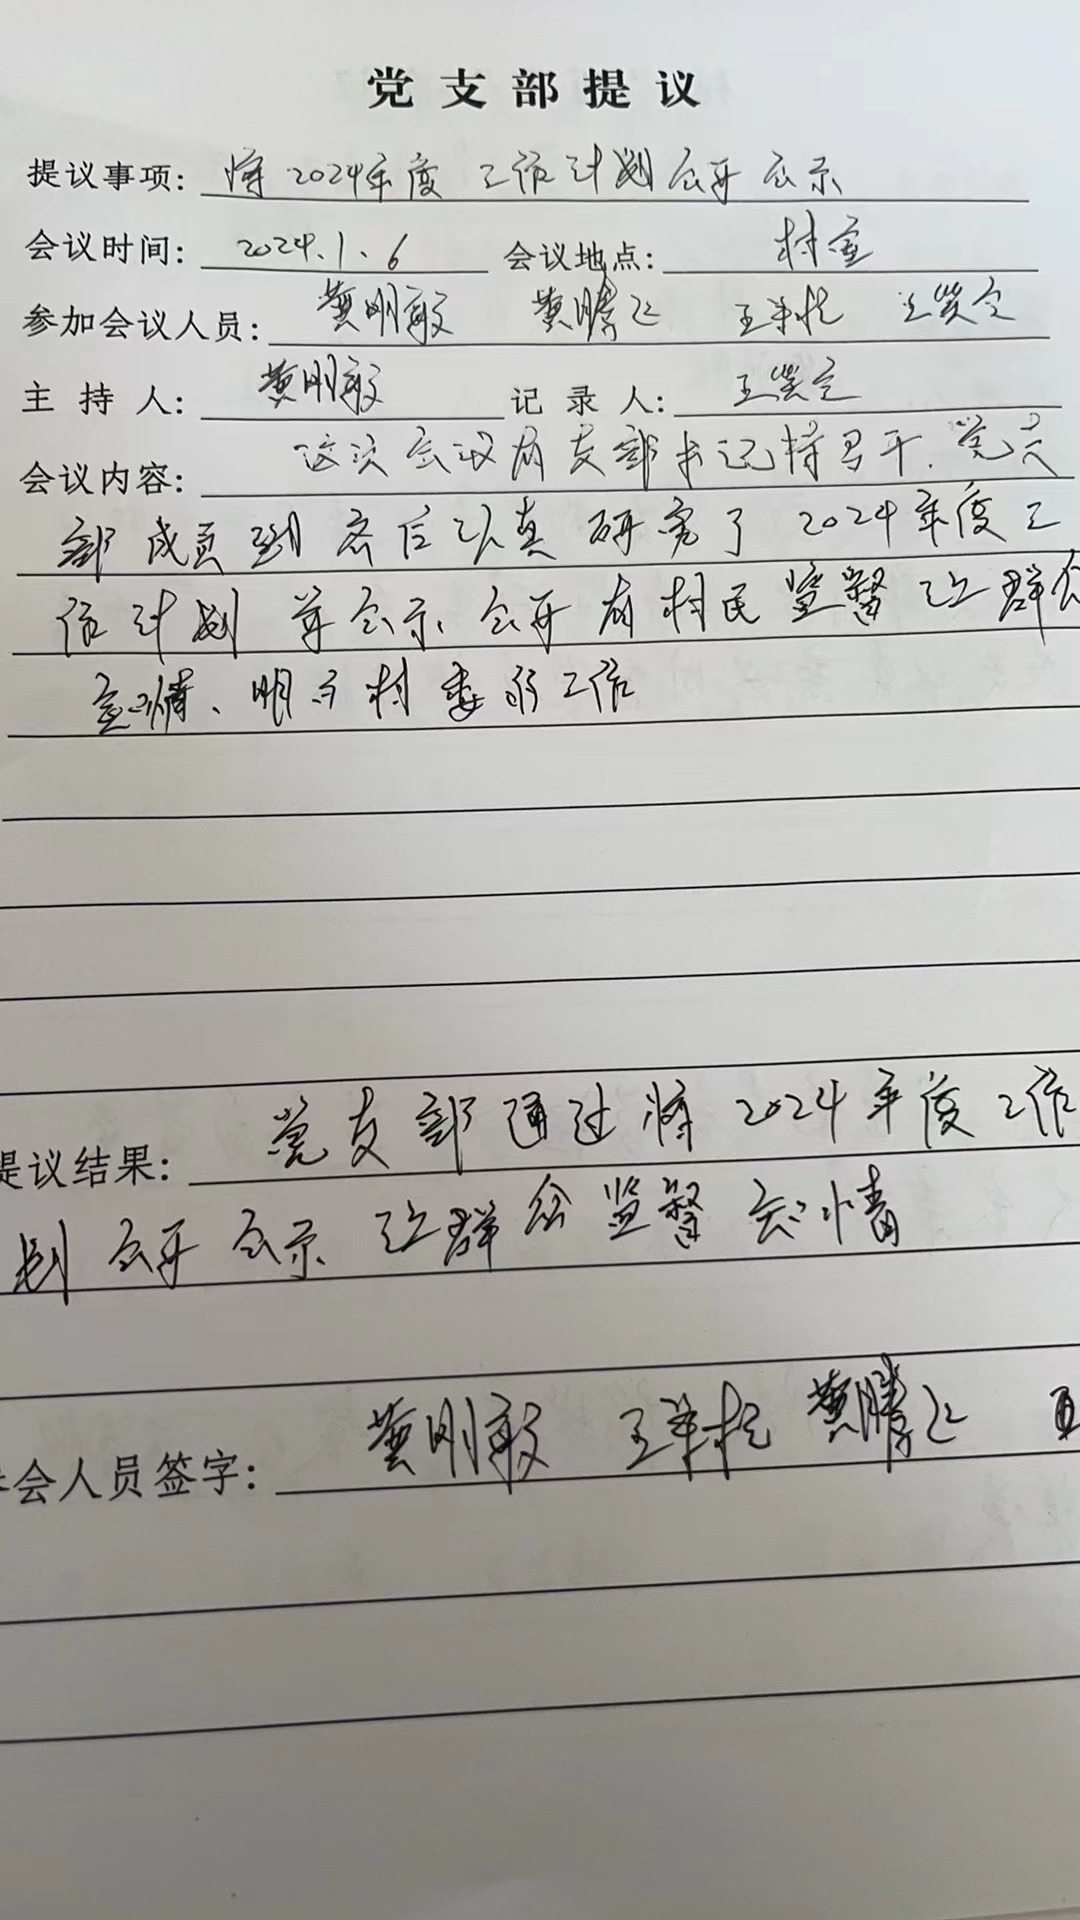 党支部提议
提议事项: 将2024年度工作计划公开公示
会议时间: 2024.1.6 会议地点: 村室
参加会议人员: 黄明敏 黄腾飞 王
主持人: 黄明敏 记录人: 王
会议内容: 这次会议有支部书记持召开.党支
部成员到齐后认真研究了2024年度工
作计划 并公示、公开有村民监督让群众
知情、明了村委的工作
提议结果: 党支部通过将2024年度工作
划公开公示让群众监督知情
会人员签字: 黄明敏 王 黄腾飞